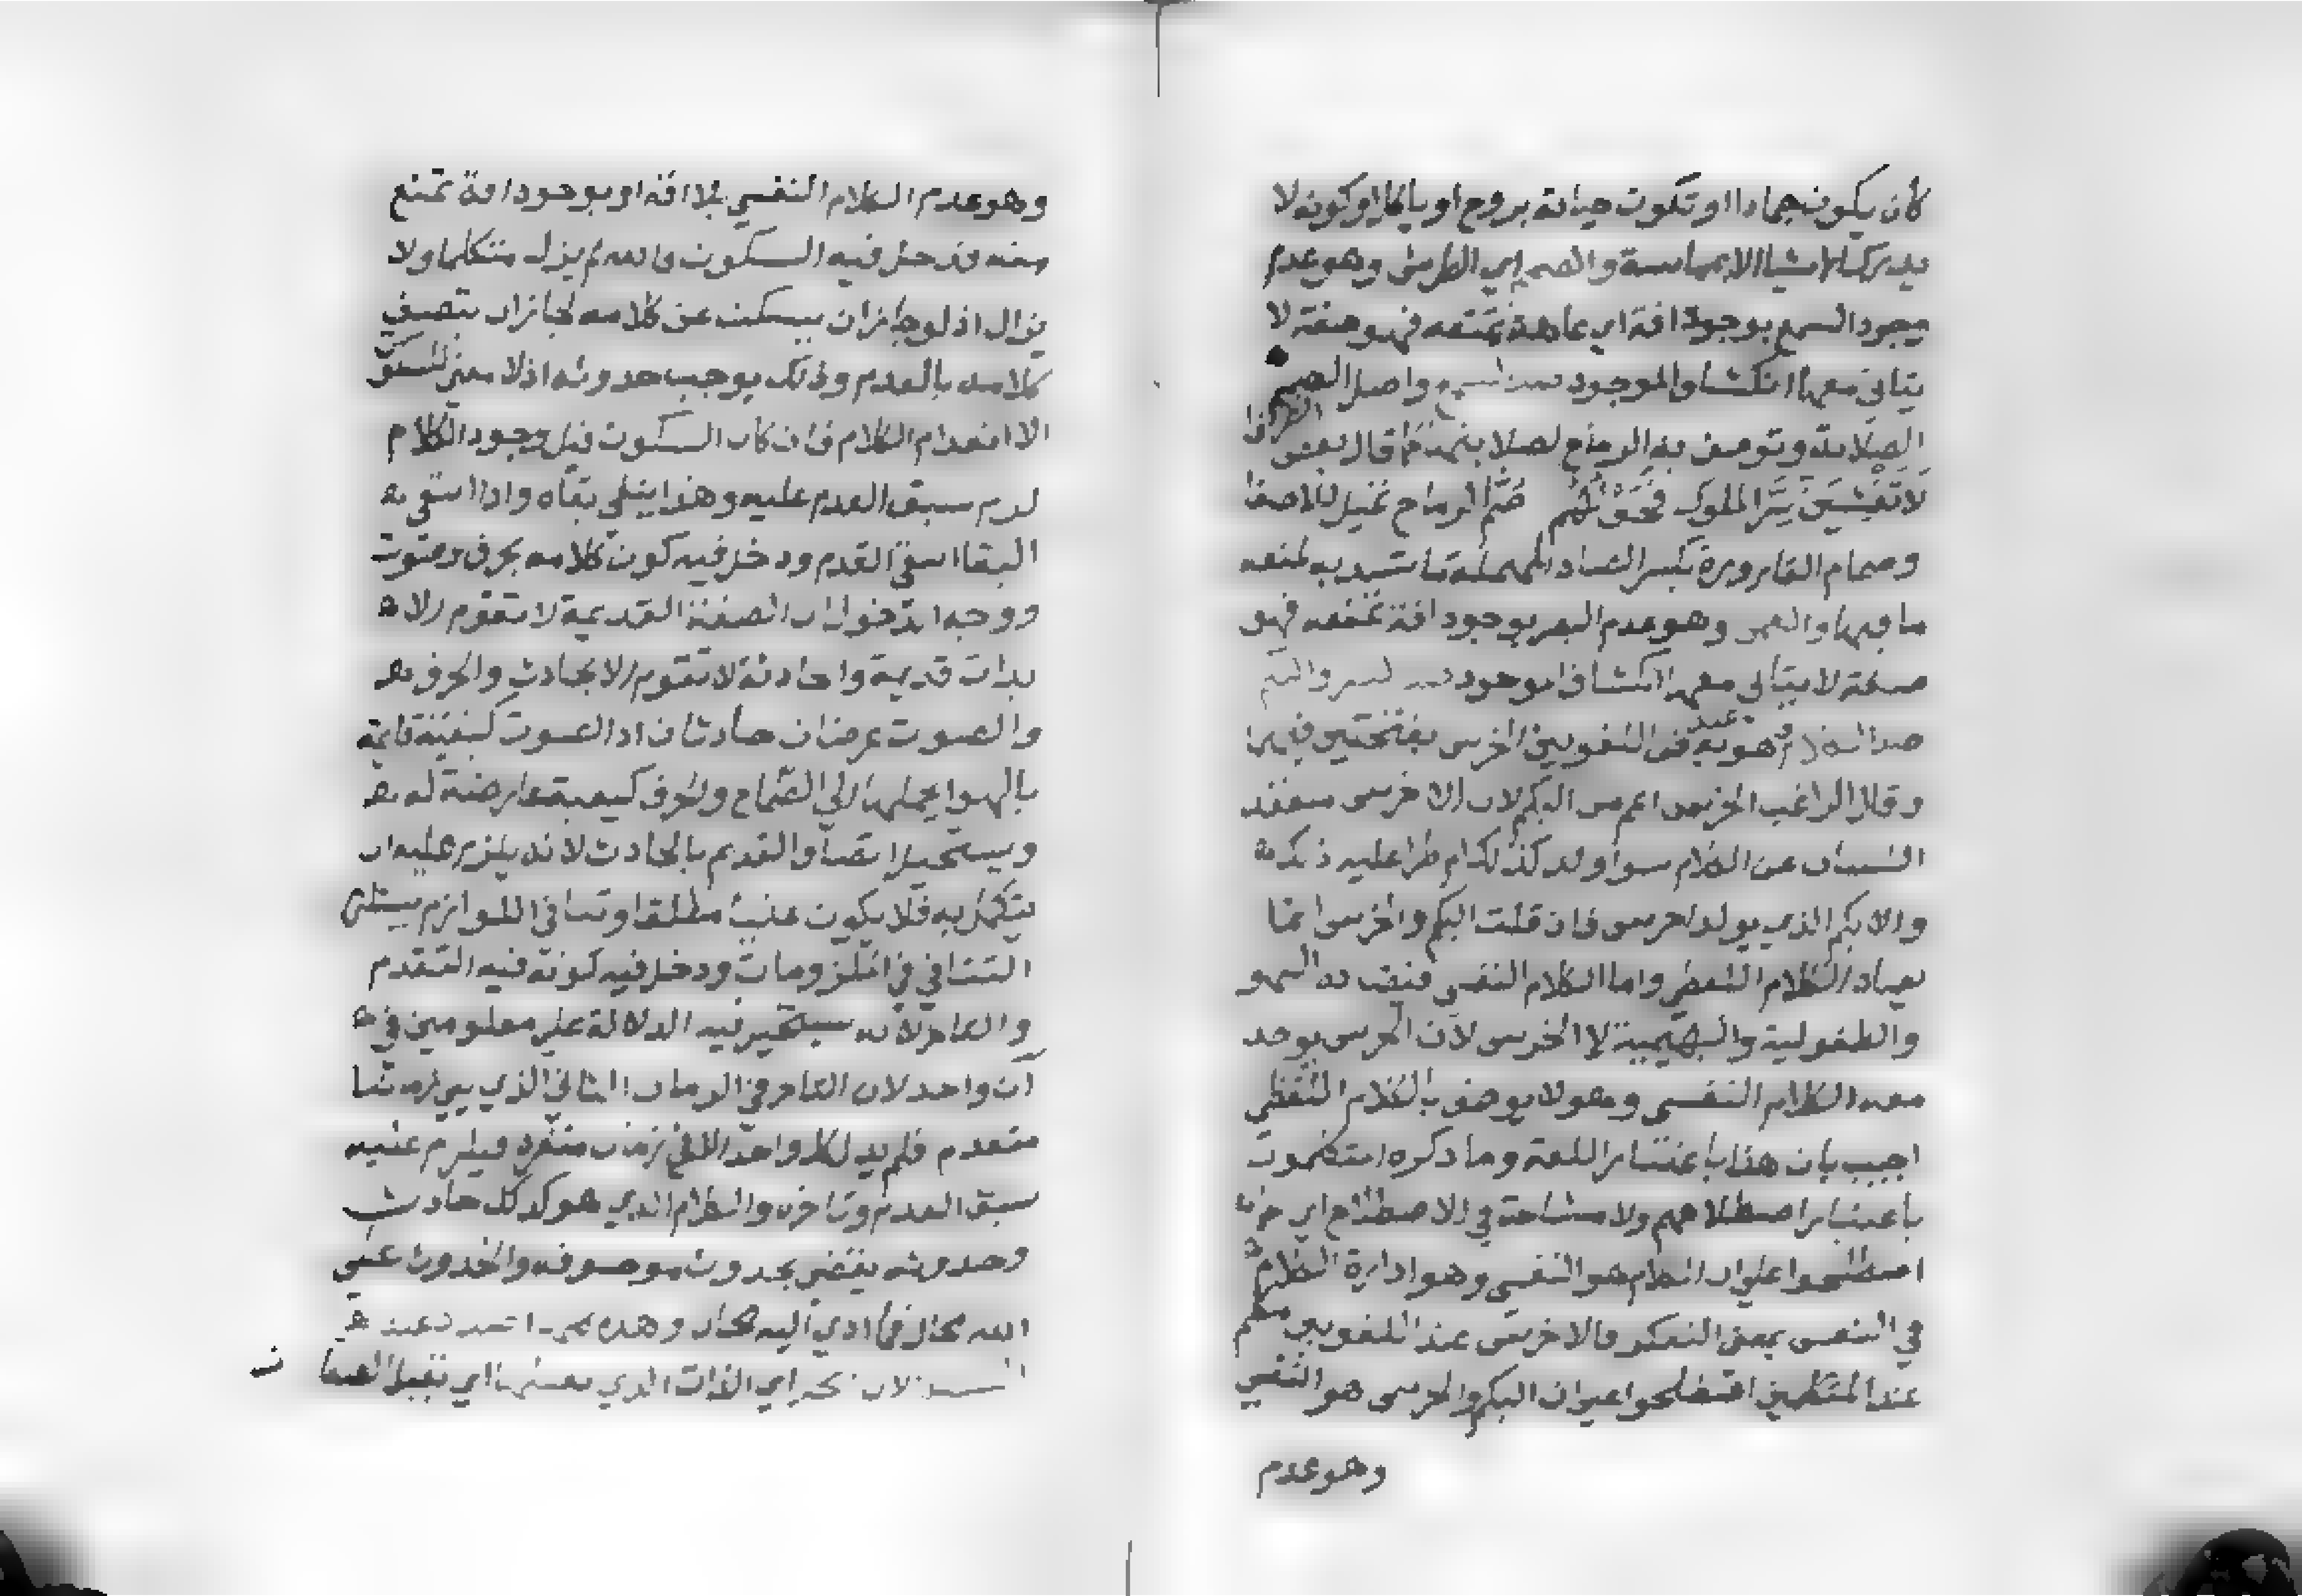 كأن يكون جمادا او تكون حياته بروح او ياكل او كونه لا
يدرك الاشيا الا بمماسة والصمم اي الطرش وهو عدم
وجود السمع بوجود افة اي عاهة تمنعه فهو صفة لا
يتاتى معها انكشاف الموجود واصل الصمم
الصلابة وتوصف به الرماح لصلابتها كما قال بعض
لا تفشين سر الملوك فحولهم صم الرماح تميل للاصغا
وصمام القارورة بكسر الصاد المهملة ما تسد به لمنعه
ما فيها والعمى وهو عدم البصر بوجود افة تمنعه فهو
صفة لا يتاتى معها انكشاف الموجود والبكم
ضد الكلام وهو عند اللغويين الخرس بفتحتين فيهما
وقال الراغب الخرس اعم من البكم لان الاخرس منعقد
اللسان عن الكلام سوا ولد كذلك ام طرا عليه ذلك
والابكم الذي يولد اخرس فان قلت البكم والخرس انما
يضاد الكلام اللفظي واما الكلام النفسي فيضاده السهو
والطفولية والبهيمية لا الخرس لان الخرس يوجد
معه الكلام النفسي وهو لا يوصف بالكلام اللفظي
اجيب بان هذا باعتبار اللغة وما ذكره المتكلمون
باعتبار اصطلاحهم ولا مشاحة في الاصطلاح اي
اصطلحوا على ان الكلام هو النفسي وهو ادارة الكلام
في النفس بمعنى التفكر فالاخرس عند اللغويين متكلم
عند المتكلمين اصطلحوا على ان البكم والخرس هو النفسي
وهو عدم
وهو عدم الكلام النفسي بلا افة او بوجود افة تمنع
منه فدخل فيه السكوت فالله لم يزل متكلما ولا
يزال اذ لو جاز ان يسكت عن كلامه لجاز ان يتصف
كلامه بالعدم وذلك يوجب حدوثه اذ لا معنى للسكوت
الا انعدام الكلام فان كان السكوت قبل وجود الكلام
لزم سبق العدم عليه وهذا ينفي بقاه واذا انتفى
البقا انتفى القدم ودخل فيه كون كلامه بحرف وصوت
ووجه الدخول ان الصفة القديمة لا تقوم الا
بذات قديمة والحادثة لا تقوم الا بحادث والحرف
والصوت عرضان حادثان اذ الصوت كيفية قايمة
بالهوا يحملها الي الصماخ والحرف كيفية عارضة له
ويستحيل اتصاف القديم بالحادث لانه يلزم عليه ان
يتكمل به فلا يكون غنيا مطلقا وتنافي اللوازم يستلزم
التنافي في الملزومات ودخل فيه كونه فيه التقدم
والتاخر لانه يستحيل فيه الدلالة على معلومين في
آن واحد لان التاخر في الزمان الثاني الذي
متقدم فلم يدل كل واحد الا في زمان منفرد فيلزم عليه
سبق العدم وتاخره والكلام الذي هو كذلك حادث
وحدوثه يقتضي بحدوث موصوفه والحدوث على
الله محال فما ادي اليه محال وهذه
اي الذات الذي اي تقبل